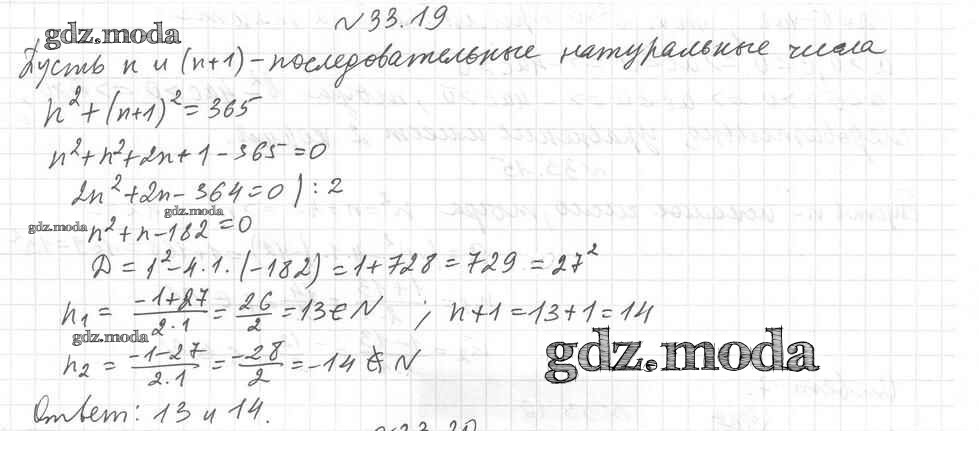 №33.19
gdz.moda
Пусть n и (n+1) - последовательные натуральные числа
n² + (n+1)² = 365
n² + n² + 2n + 1 - 365 = 0
2n² + 2n - 364 = 0 | : 2
gdz.moda
gdz.moda n² + n - 182 = 0
D = 1² - 4·1·(-182) = 1 + 728 = 729 = 27²
n₁ = (-1+27)/(2·1) = 26/2 = 13 ∈ N ; n+1 = 13+1 = 14
gdz.moda
n₂ = (-1-27)/(2·1) = -28/2 = -14 ∉ N
gdz.moda
Ответ: 13 и 14.